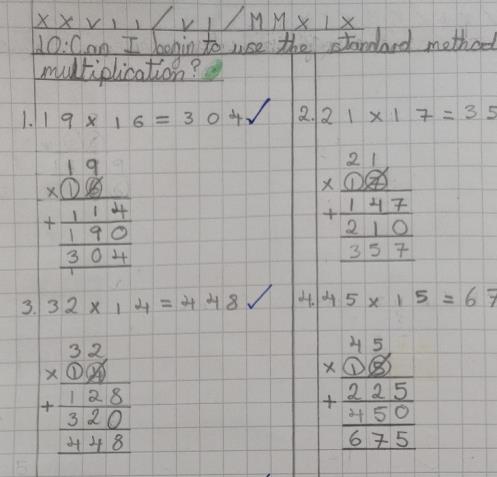 XXVII/VI/MMXIX
LO: Can I begin to use the standard method
multiplication?
1. 19 x 16 = 304
19
x 16
+ 114
190
304
1
2. 21 x 17 = 35
21
x 17
+ 147
210
357
3. 32 x 14 = 448
32
x 14
+ 128
320
448
4. 45 x 15 = 67
45
x 15
+ 225
450
675